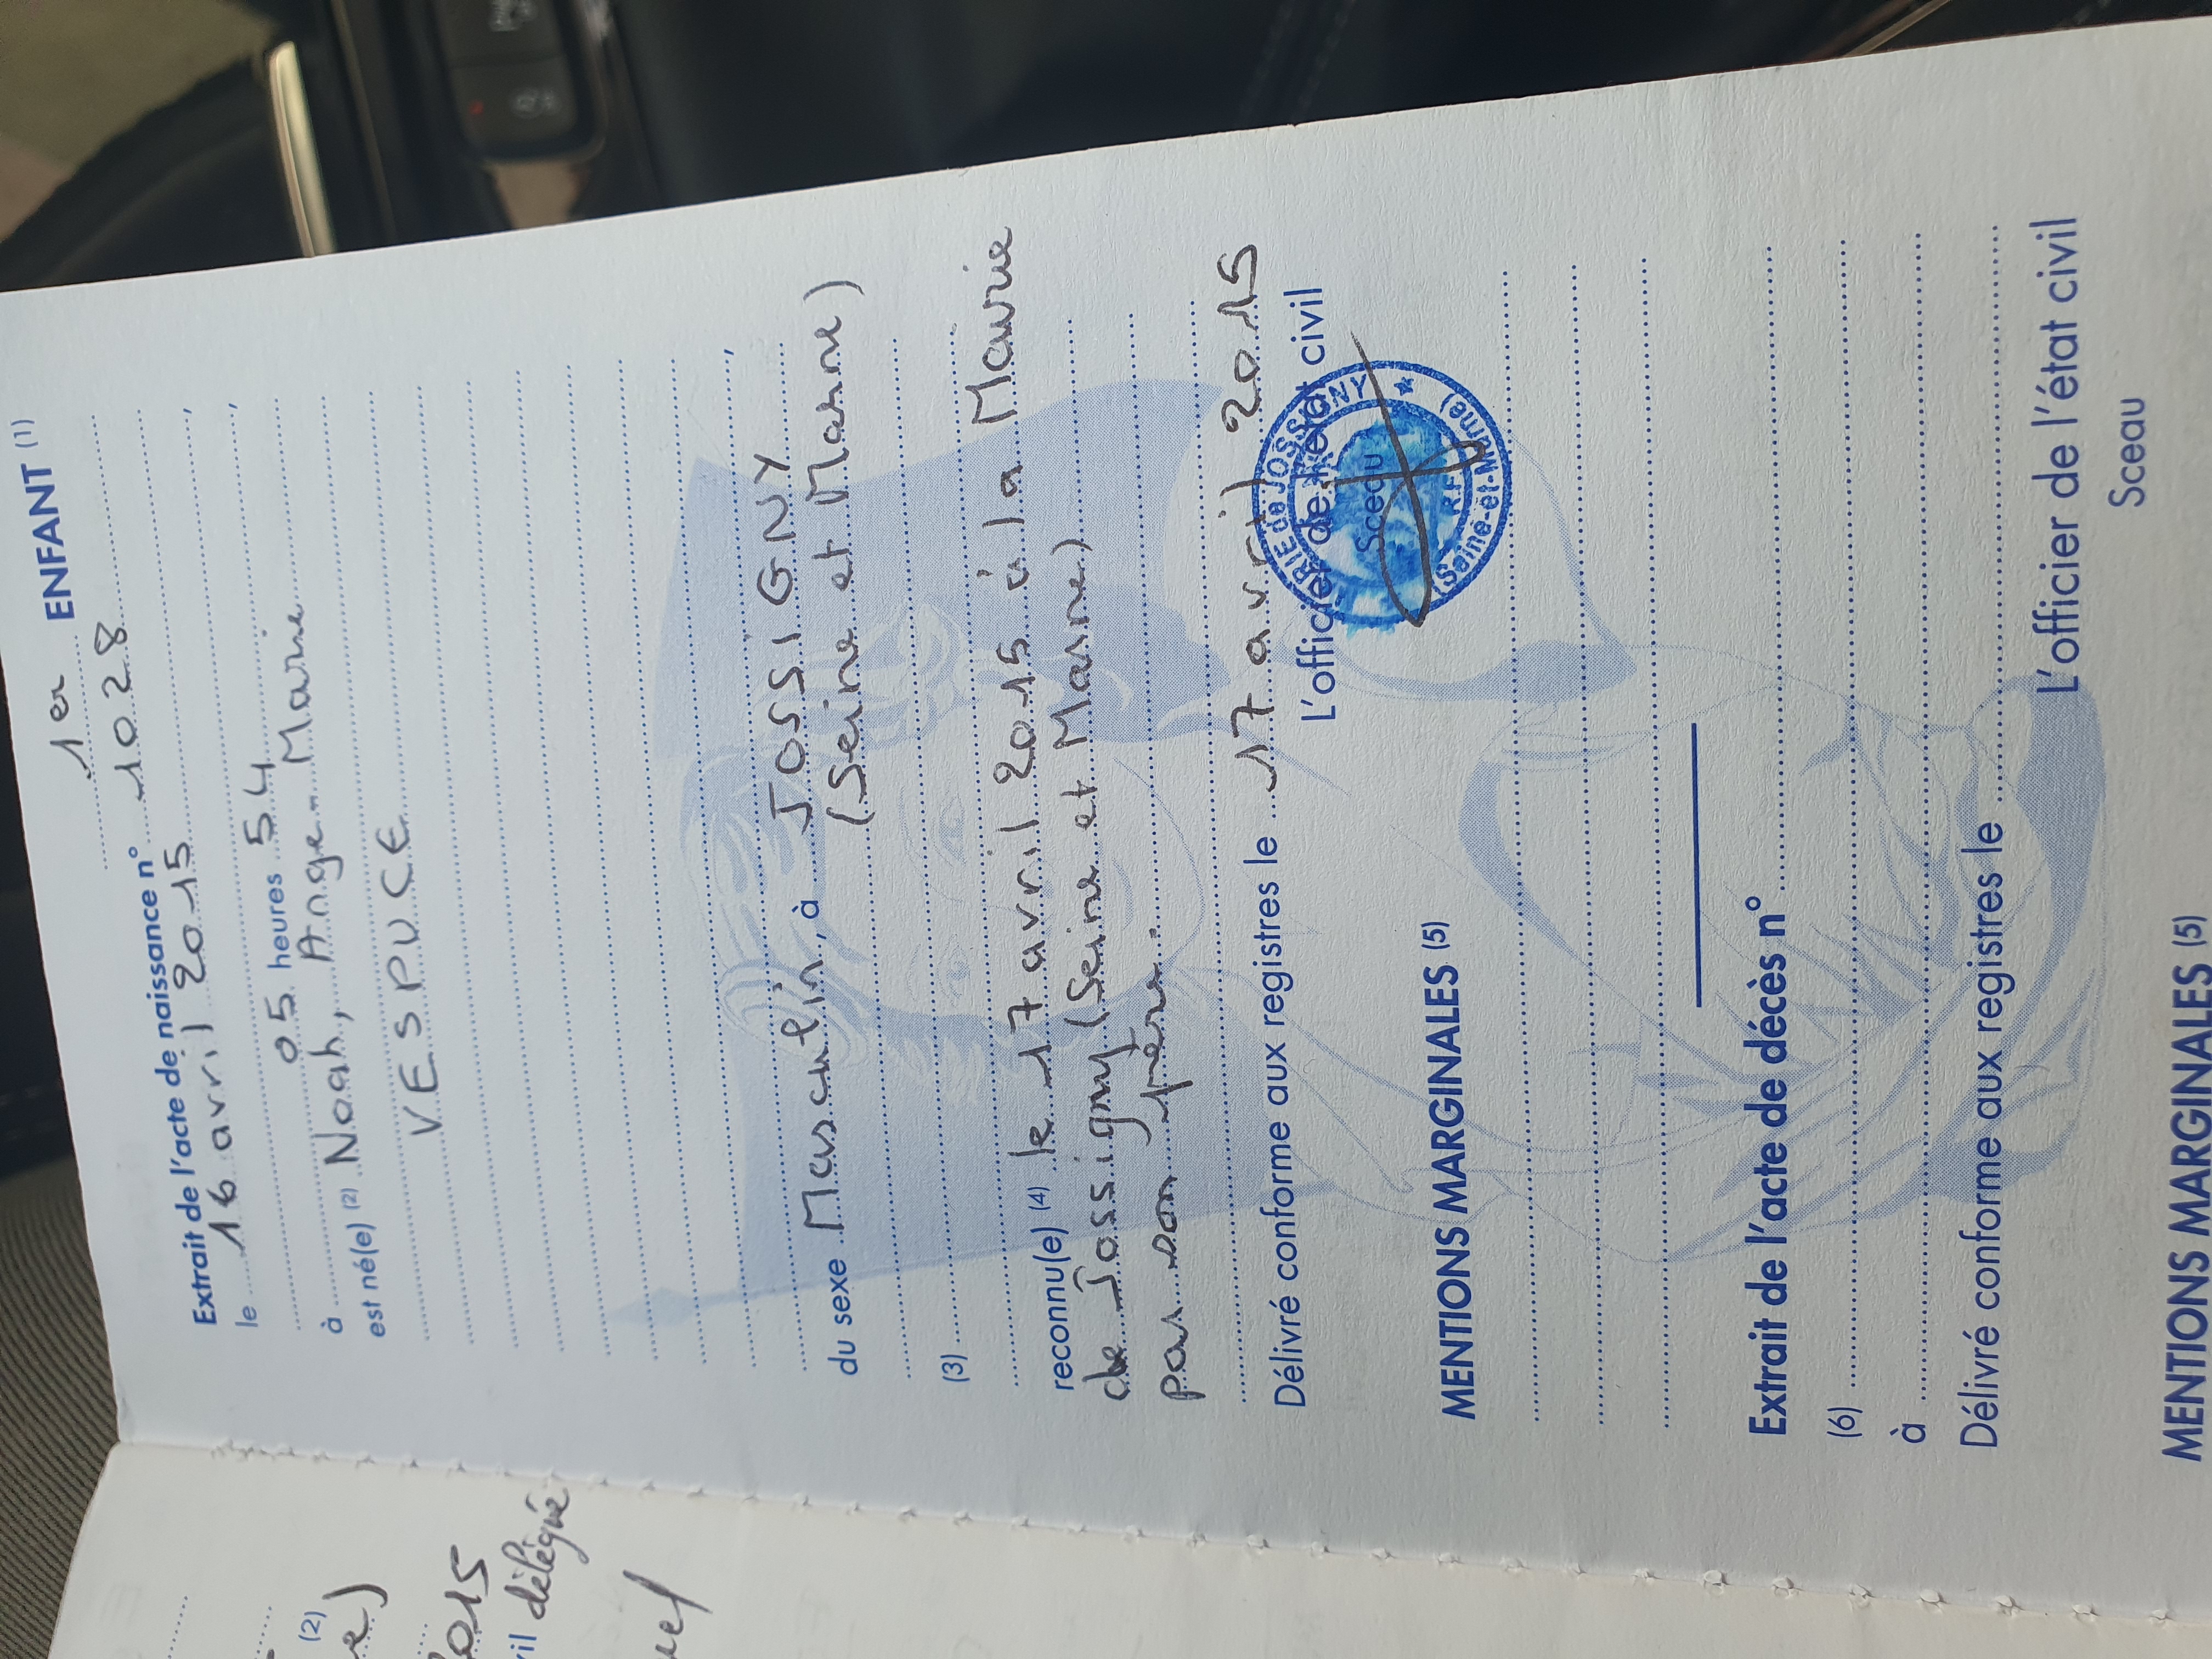 1er ENFANT (1)
Extrait de l'acte de naissance n° 1028
le 16 avril 2015,
à 05 heures 54,
est né(e) (2) Noah, Ange-Marie
VESPUCE
du sexe Masculin, à JOSSIGNY
(Seine et Marne)
(3)
reconnu(e) (4) le 17 avril 2015 à la Mairie
de Jossigny (Seine et Marne)
par son père.
Délivré conforme aux registres le 17 avril 2015
L'officier de l'état civil
Sceau
MAIRIE de JOSSIGNY
R.F.
(Seine-et-Marne)
MENTIONS MARGINALES (5)
Extrait de l'acte de décès n°
(6)
à
Délivré conforme aux registres le
L'officier de l'état civil
Sceau
MENTIONS MARGINALES (5)
(2)
2015
délégué